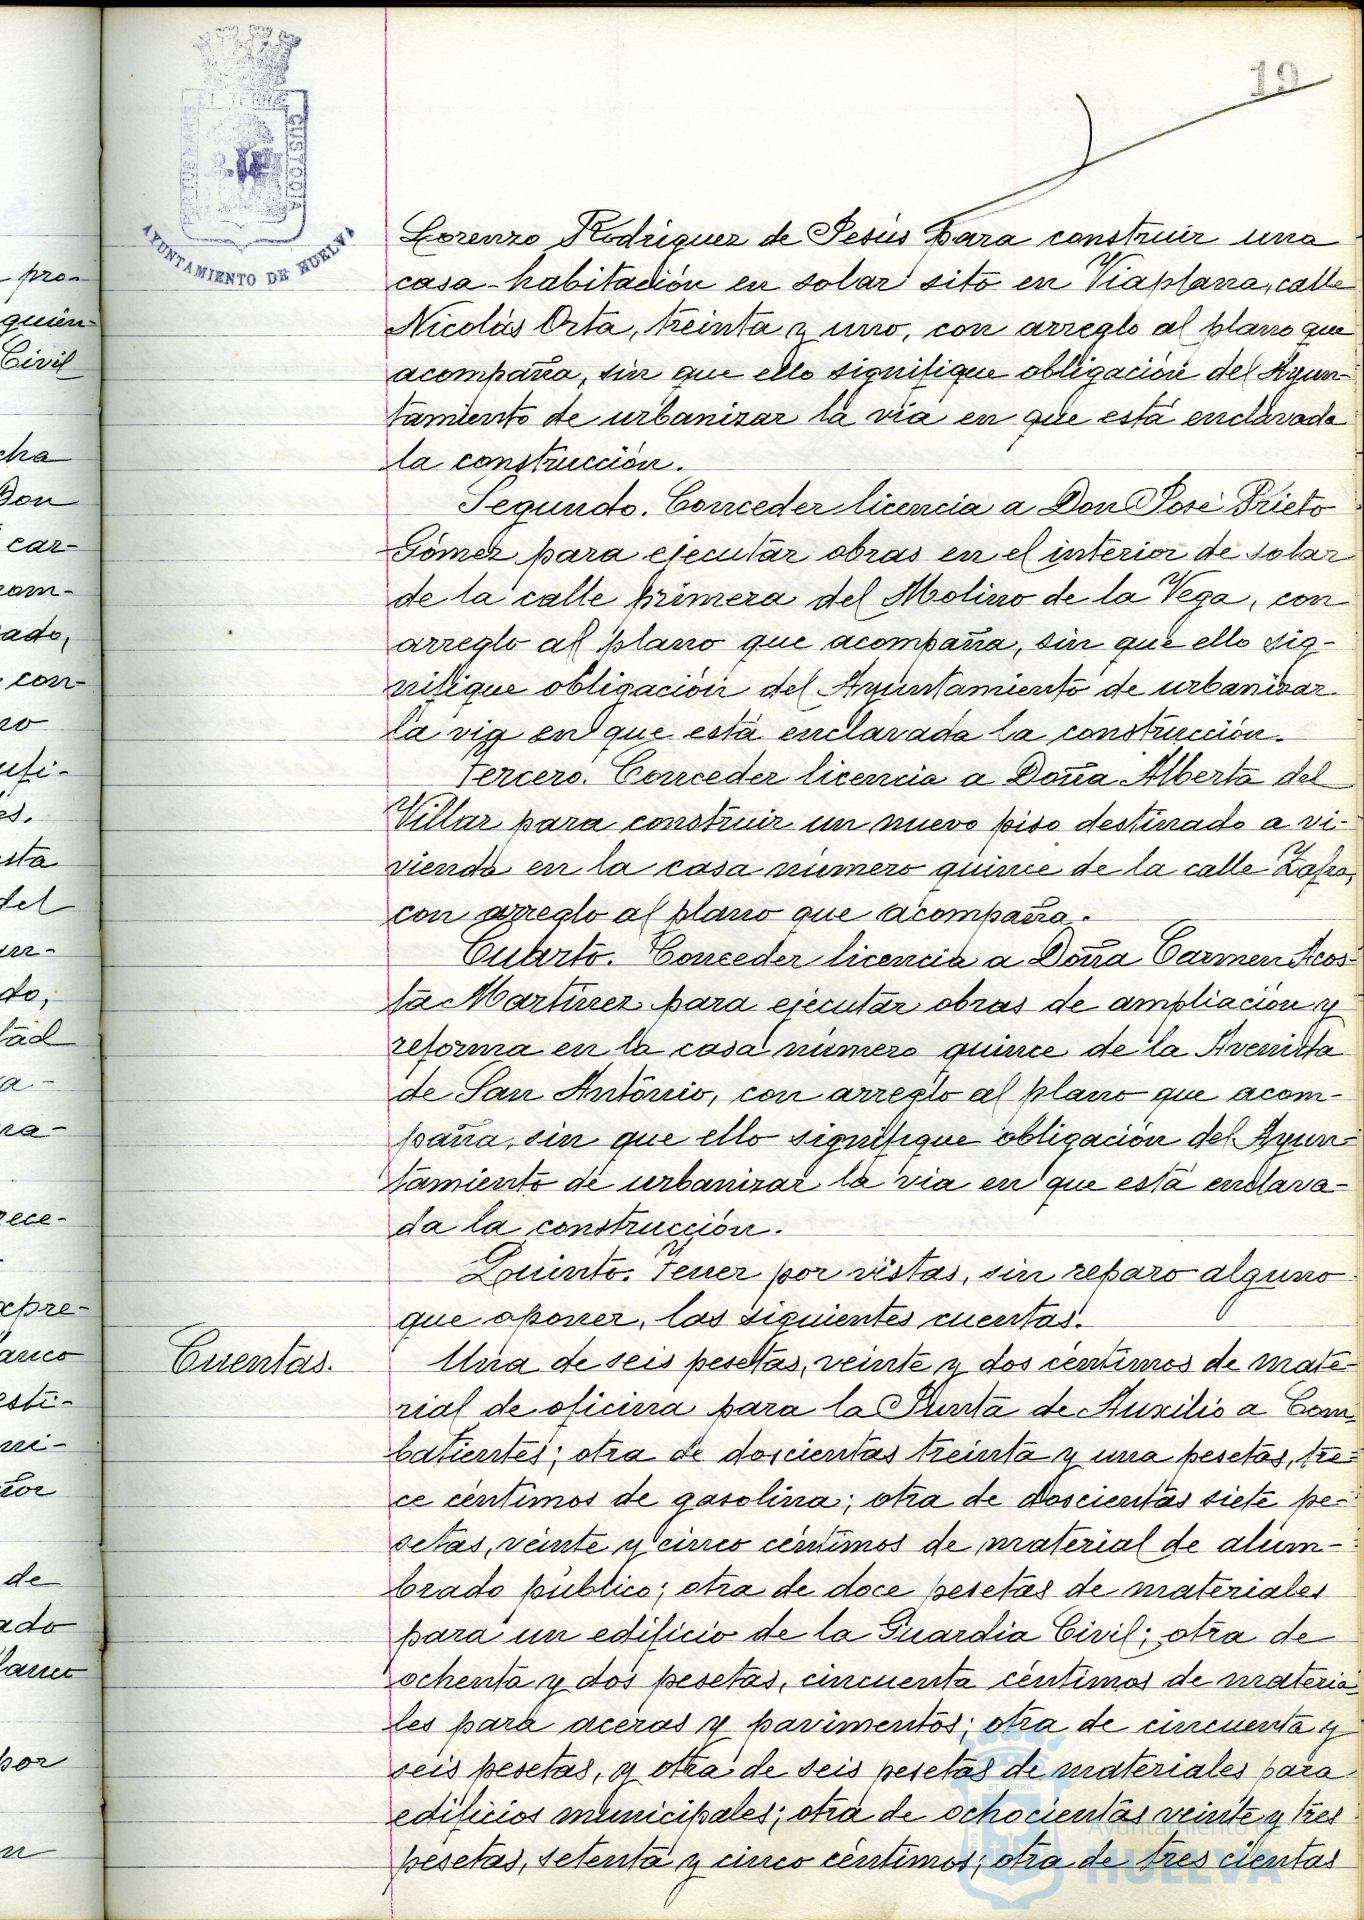 19
PORTUS MARIS
ET TERRÆ
CUSTODIA
AYUNTAMIENTO DE HUELVA
pro-
quien-
Civil
cha
Don
car-
com-
ado,
con-
ro
ufi-
es.
sta
del
un-
do,
tad
a-
na-
rece-
xpre-
anco
esti-
ni-
tor
de
ado
lanco
por
n
Lorenzo Rodriguez de Jesús para construir una
casa-habitación en solar sito en Viaplana, calle
Nicolás Orta, treinta y uno, con arreglo al plano que
acompaña, sin que ello signifique obligación del Ayun-
tamiento de urbanizar la via en que está enclavada
la construcción.
Segundo. Conceder licencia a Don José Prieto
Gómez para ejecutar obras en el interior de solar
de la calle primera del Molino de la Vega, con
arreglo al plano que acompaña, sin que ello sig-
nifique obligación del Ayuntamiento de urbanizar
la via en que está enclavada la construcción.
Tercero. Conceder licencia a Doña Alberta del
Villar para construir un nuevo piso destinado a vi-
vienda en la casa número quince de la calle Zafra,
con arreglo al plano que acompaña.
Cuarto. Conceder licencia a Doña Carmen Acos-
ta Martinez para ejecutar obras de ampliación y
reforma en la casa número quince de la Avenida
de San Antonio, con arreglo al plano que acom-
paña, sin que ello signifique obligación del Ayun-
tamiento de urbanizar la via en que está enclava-
da la construcción.
Quinto. Tener por vistas, sin reparo alguno
que oponer, las siguientes cuentas.
Cuentas.
Una de seis pesetas, veinte y dos céntimos de mate-
rial de oficina para la Junta de Auxilio a Com-
batientes; otra de doscientas treinta y una pesetas, tre-
ce céntimos de gasolina; otra de doscientas siete pe-
setas, veinte y cinco céntimos de material de alum-
brado público; otra de doce pesetas de materiales
para un edificio de la Guardia Civil; otra de
ochenta y dos pesetas, cincuenta céntimos de materia-
les para aceras y pavimentos; otra de cincuenta y
seis pesetas, y otra de seis pesetas de materiales para
edificios municipales; otra de ochocientas veinte y tres
pesetas, setenta y cinco céntimos; otra de tres cientas
Ayuntamiento de
HUELVA